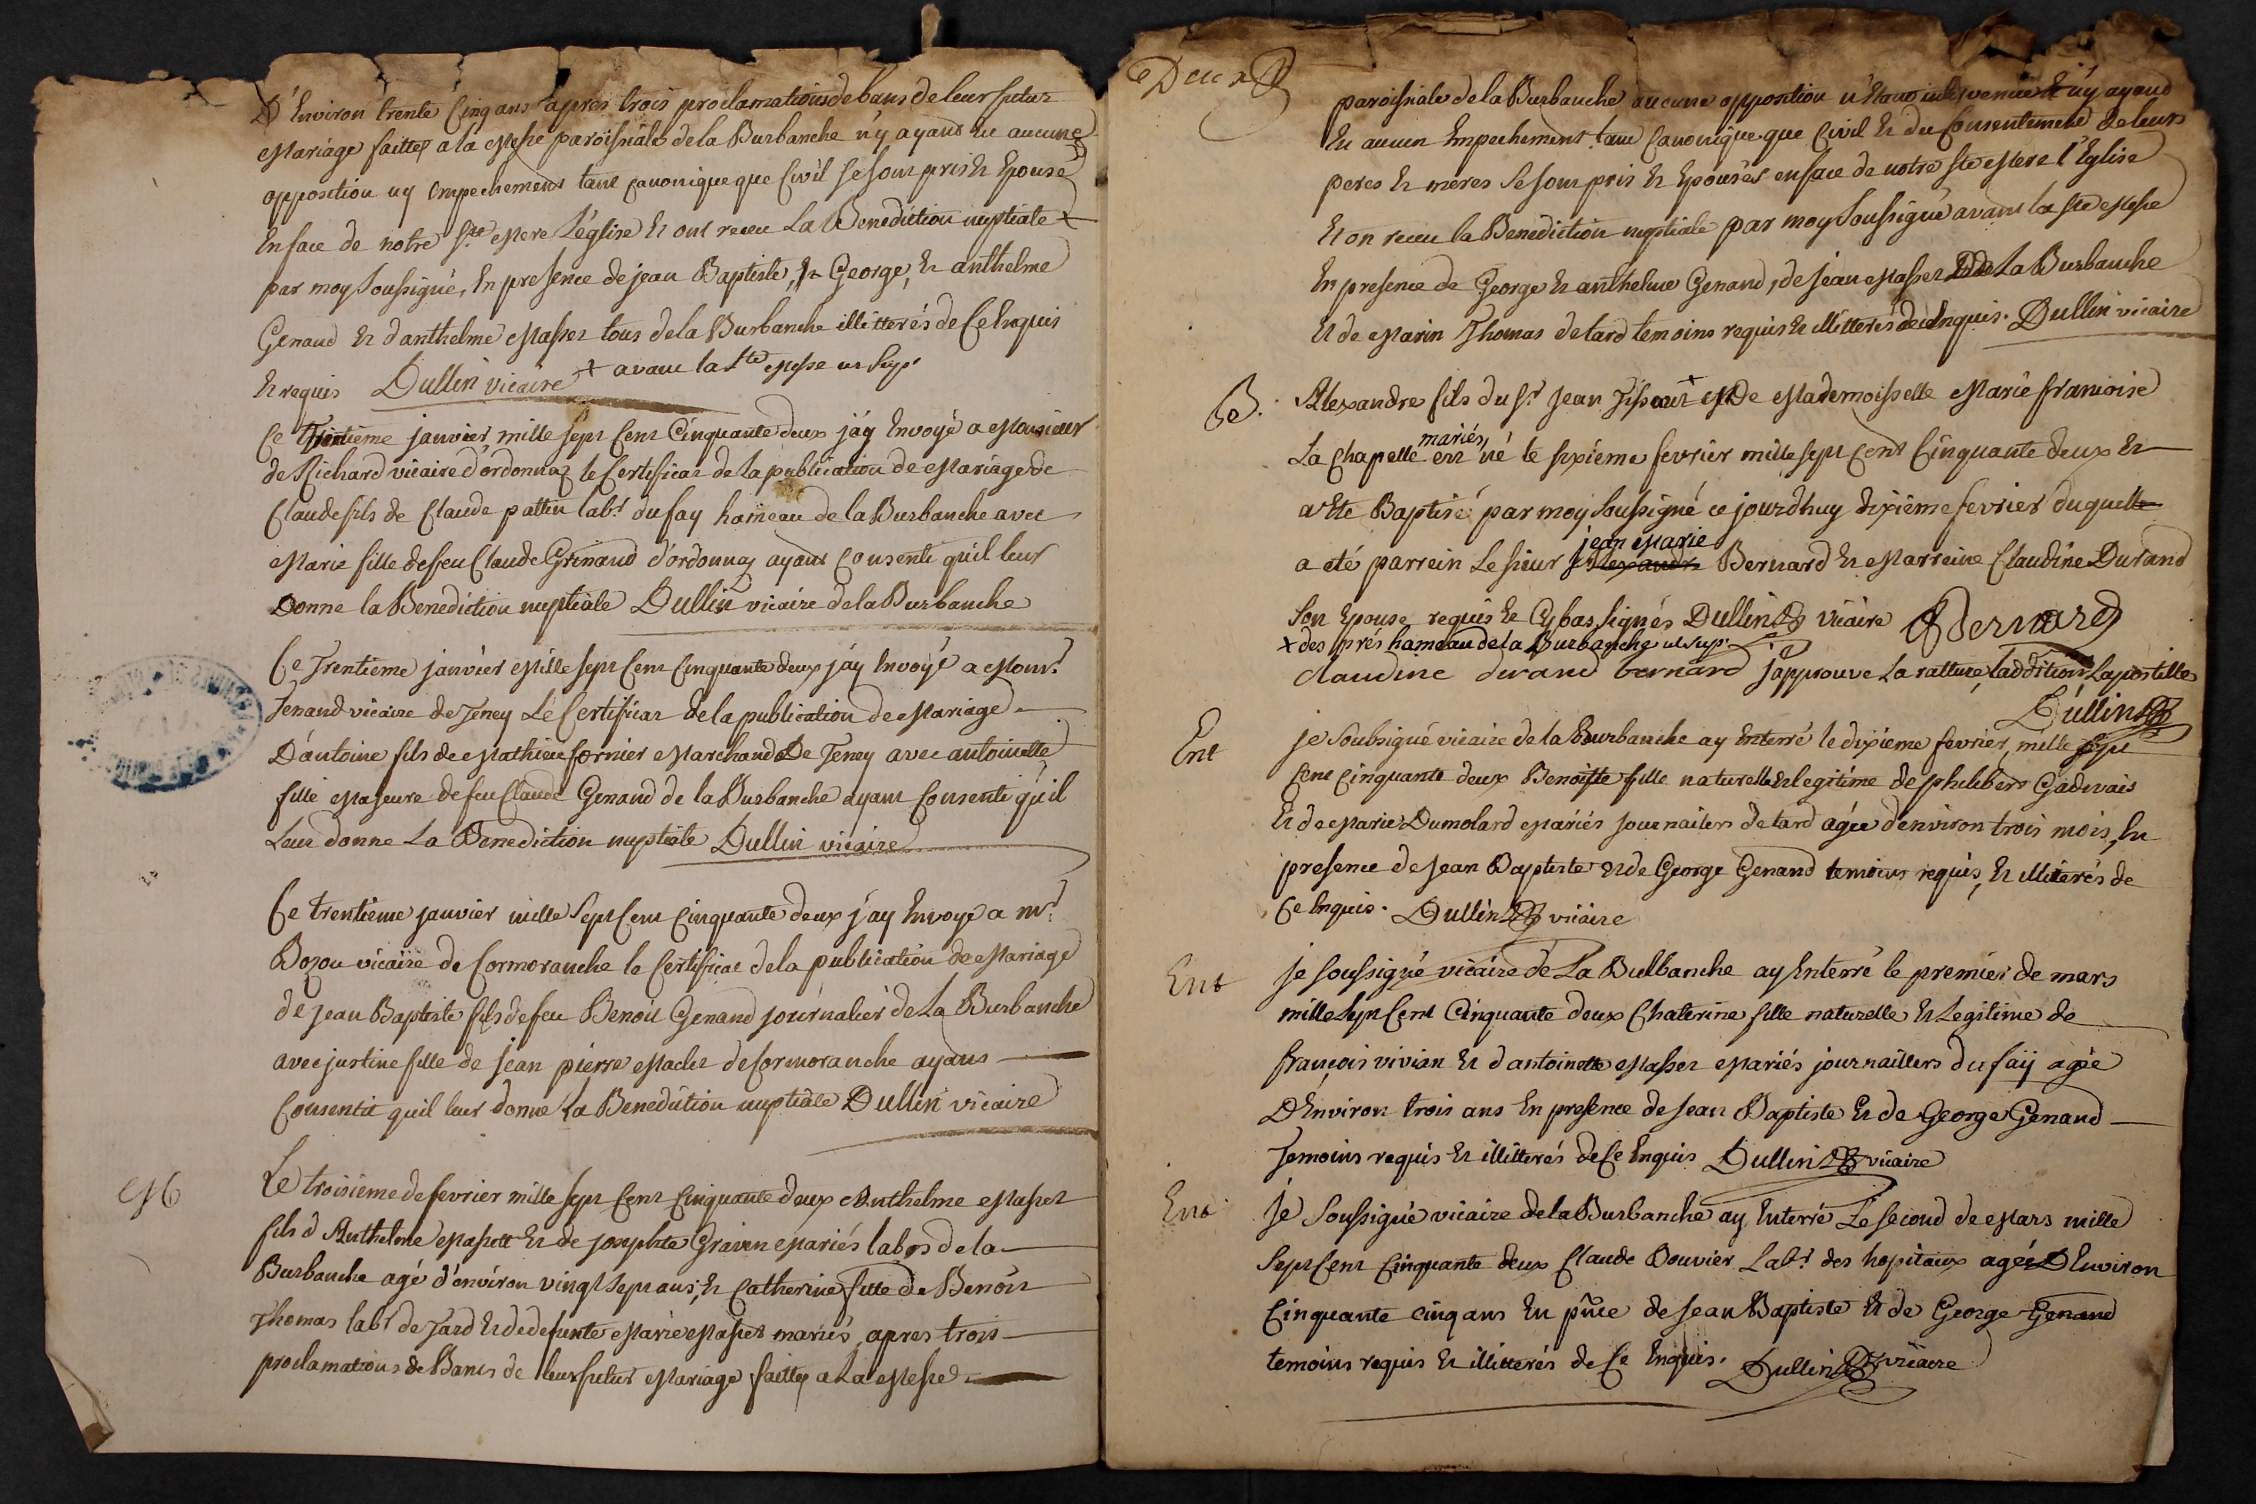 D'Environ trente Cinq ans apres trois proclamations de bans de leur futur
Mariage faittes a la Messe paroissiale de la Burbanche n'y ayant eu aucune
opposition ny empechement tant canonique que Civil se sont pris et Epousé
En face de notre Ste Mere L'église et ont receu La Benediction nuptiale +
par moy Soussigné, En presence de jean Baptiste, et George, et anthelme
Genand et d'anthelme Masset tous de la Burbanche illitterés de Ce Enquis
et requis Dullin vicaire + avant la Ste Messe ut supr
Ce Trentième janvier mille sept Cent Cinquante deux j'ay Envoyé a Monsieur
de Richard vicaire d'ordonnaz le Certificat de la publication de Mariage de
Claude fils de Claude pattin labr du fay hameau de la Burbanche avec
Marie fille de feu Claude Grinand d'ordonnaz ayant Consenti qu'il leur
Donne la Benediction nuptiale Dullin vicaire de la Burbanche
Ce Trentieme janvier Mille sept Cent Cinquante deux j'ay Envoyé a Monsr
Jenand vicaire de Teney Le Certificat de la publication de Mariage
D'antoine fils de Mathieu fornier Marchand De Teney avec antoinette
fille Majeure de feu Claude Genand de la Burbanche ayant Consenti qu'il
Leur donne La Benediction nuptiale Dullin vicaire
Ce trentième janvier mille Sept Cent Cinquante deux j'ay Envoyé a mr
Bozon vicaire de Cormoranche le Certificat de la publication de Mariage
de jean Baptiste fils de feu Benoit Genand journalier de La Burbanche
avec justine fille de jean pierre Maclet de Cormoranche ayant
Consentit quil leur donne La Benediction nuptiale Dullin vicaire
M
Le troisième de fevrier mille sept Cent Cinquante deux Anthelme Masset
fils d'Anthelme Massett et de josephte Graven Mariés labrs de la
Burbanche agé d'environ vingt sept ans, et Catherine fille de Benoit
Thomas labr de Tard et de defunte Marie Masset mariés, apres trois
proclamations de Bancs de leur futur Mariage faittes a La Messe
Deux
paroissiale de la Burbanche aucune opposition n'étant intervenue n'y ayant
Eu aucun Empechement tant Canonique que Civil et du Consentement de leurs
peres et meres Se sont pris et Epousés en face de notre Ste Mere l'Eglise
Et on receu la Benediction nuptiale par moy Soussigné avant la Ste Messe
En presence de George et anthelme Genand, de jean Masset de La Burbanche
Et de Marin Thomas de tard temoins requis et illitterés de ce Enquis. Dullin vicaire
B.
Alexandre fils du Sr Jean Tissot + et De Mademoisselle Marie francoise
La Chapelle mariés, est né le sixième fevrier mille sept cent Cinquante deux et
a Ete Baptisé par moy Soussigné ce jourd'huy dixième fevrier duquel
a eté parrein Le sieur jean Marie Bernard et Marreine Claudine Durand
Son Epouse requis et Cy bas signés Dullin vicaire Bernard
+ des prés hameau de la Burbanche ut supr
claudine durand bernard j'approuve La ratture, l'addition Lapostille
Dullin
Ent
je Soubsigné vicaire de la Burbanche ay Enterré le dixieme fevrier, mille sept
Cent Cinquante deux Benoitte fille naturelle et legitime de philibert Gadevais
Et de Marie Dumolard Mariés journailers de tard agée d'environ trois mois, En
presence de Jean Baptiste et de George Genand temoins requis, et illiterés de
Ce Enquis. Dullin vicaire
Ent
Je soussigné vicaire de La Bulbanche ay Enterré le premier de mars
mille Sept Cent Cinquante deux Chaterine fille naturelle et Legitime de
francois vivian et d'antoinette Masset Mariés journaillers du faij agée
D'Environ trois ans En presence de Jean Baptiste et de George Genand
Temoins requis et illitterés de Ce Enquis Dullin vicaire
Ent
Je Soussigné vicaire de la Burbanche ay Enterré Le second de Mars mille
Sept Cent Cinquante deux Claude Bouvier Labr des hopitaux agée D'Environ
Cinquante cinq ans En pñce de Jean Baptiste et de George Genand
temoins requis et illitterés de Ce Enquis. Dullin vicaire